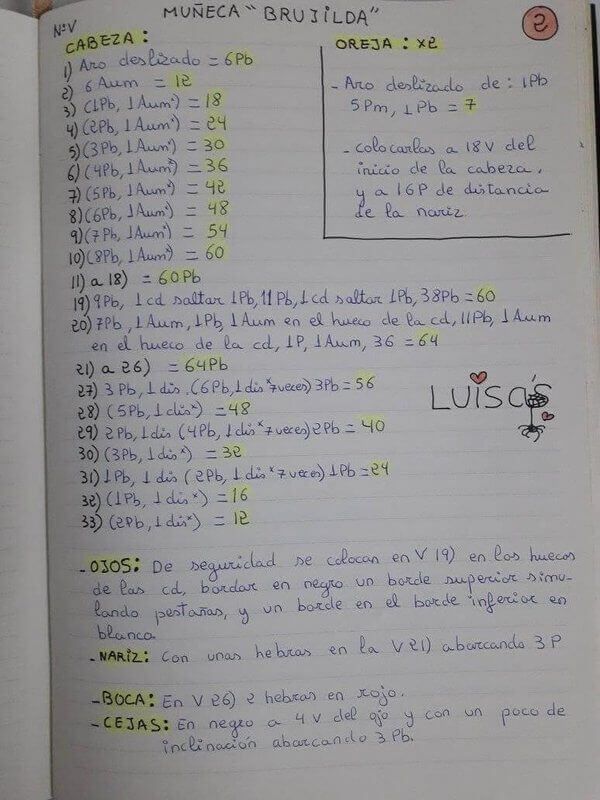 MUÑECA "BRUJILDA"
2
NºV
CABEZA:
1) Aro deslizado = 6Pb
2) 6 Aum = 12
3) (1Pb, 1Aum*) = 18
4) (2Pb, 1Aum*) = 24
5) (3Pb, 1Aum*) = 30
6) (4Pb, 1Aum*) = 36
7) (5Pb, 1Aum*) = 42
8) (6Pb, 1Aum*) = 48
9) (7Pb, 1Aum*) = 54
10) (8Pb, 1Aum*) = 60
OREJA: x2
- Aro deslizado de: 1Pb
5Pm, 1Pb = 7
- colocarlas a 18V del
inicio de la cabeza,
y a 16P de distancia
de la nariz.
11) a 18) = 60Pb
19) 9Pb, 1cd saltar 1Pb, 11Pb, 1cd saltar 1Pb, 38Pb = 60
20) 7Pb, 1Aum, 1Pb, 1Aum en el hueco de la cd, 11Pb, 1Aum
en el hueco de la cd, 1P, 1Aum, 36 = 64
21) a 26) = 64Pb
27) 3Pb, 1dis, (6Pb, 1dis*7veces) 3Pb = 56
28) (5Pb, 1dis*) = 48
29) 2Pb, 1dis (4Pb, 1dis*7veces) 2Pb = 40
30) (3Pb, 1dis*) = 32
31) 1Pb, 1dis (2Pb, 1dis*7veces) 1Pb = 24
32) (1Pb, 1dis*) = 16
33) (2Pb, 1dis*) = 12
LUISA'S
- OJOS: De seguridad se colocan en V 19) en los huecos
de las cd, bordar en negro un borde superior simu-
lando pestañas, y un borde en el borde inferior en
blanco.
- NARIZ: Con unas hebras en la V21) abarcando 3P
- BOCA: En V26) 2 hebras en rojo.
- CEJAS: En negro a 4V del ojo y con un poco de
inclinación abarcando 3Pb.